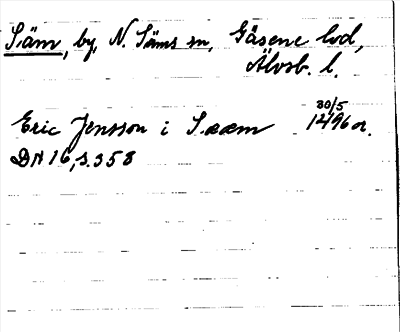 Säm, by, N. Säms sn, Gäsene hd,
Älvsb. l.
Eric Jensson i Sææm 30/5 1496 or.
DN 16, s. 358